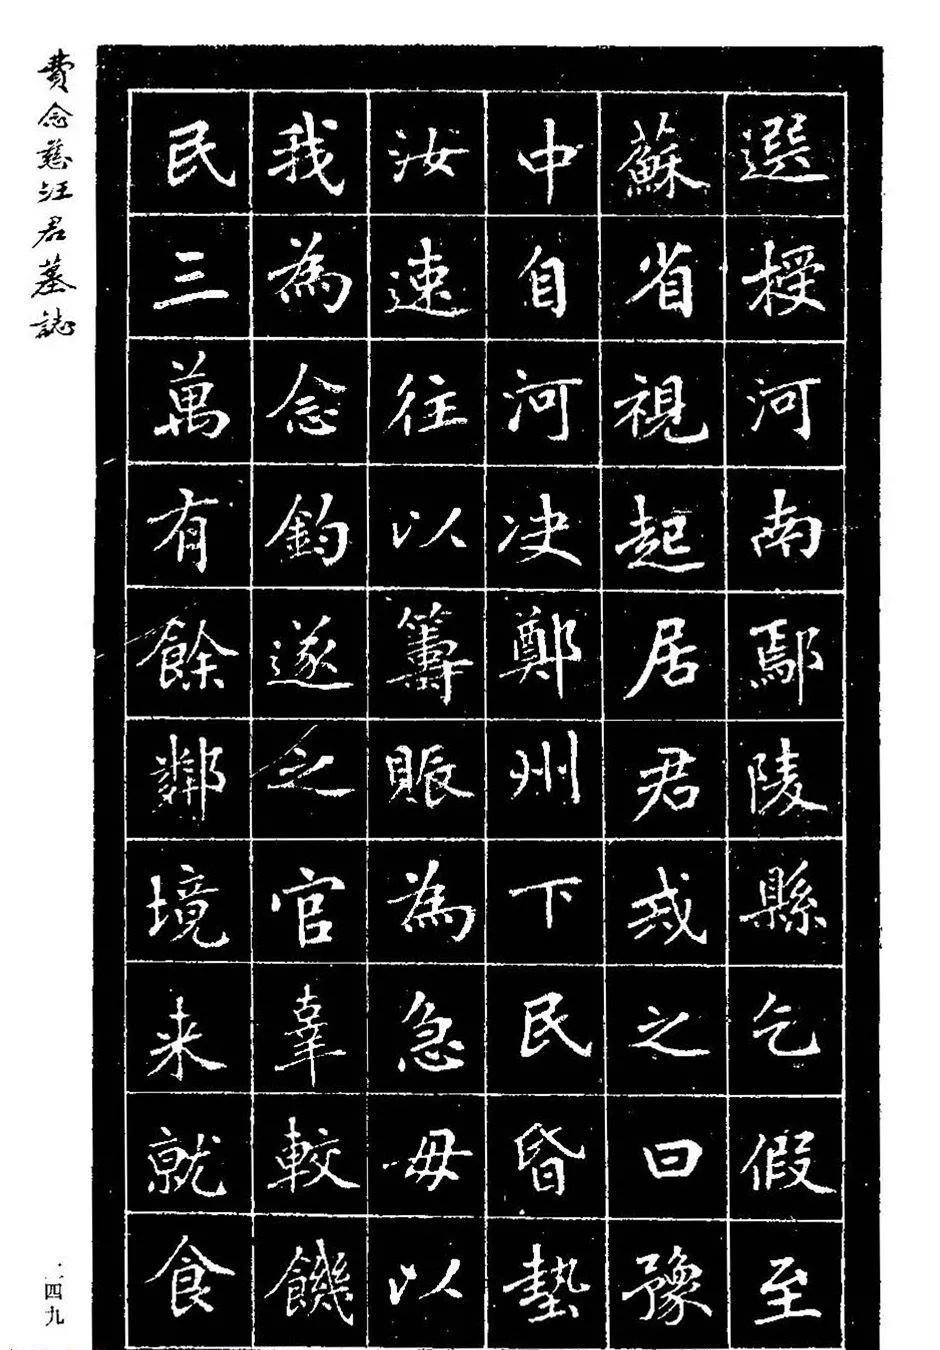 選授河南鄢陵縣乞假至
蘇省視起居君戒之曰豫
中自河决鄭州下民昏墊
汝速往以籌賑為急毋以
我為念鈞遂之官辜較饑
民三萬有餘鄰境来就食
費念慈汪君墓誌
一四九